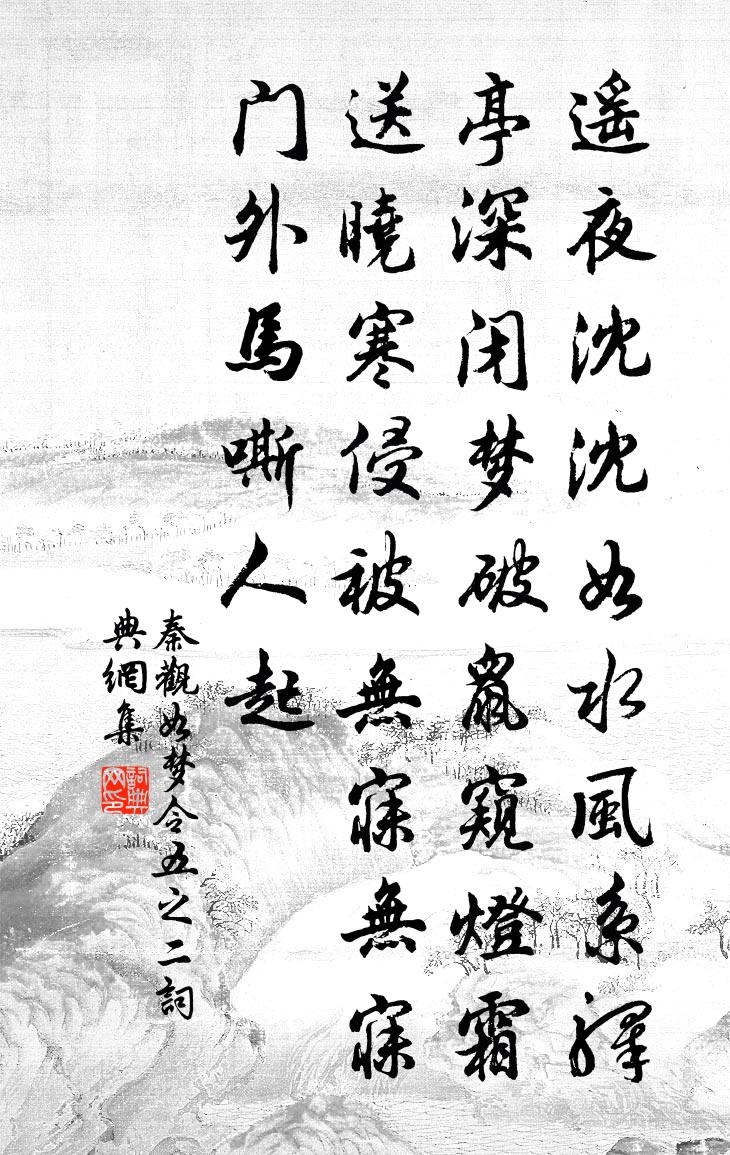 遥夜沈沈如水風系驛
亭深闭梦破鼠窺燈霜
送曉寒侵被無寐無寐
门外馬嘶人起
秦觀如梦令五之二詞
典網集
詞典网印